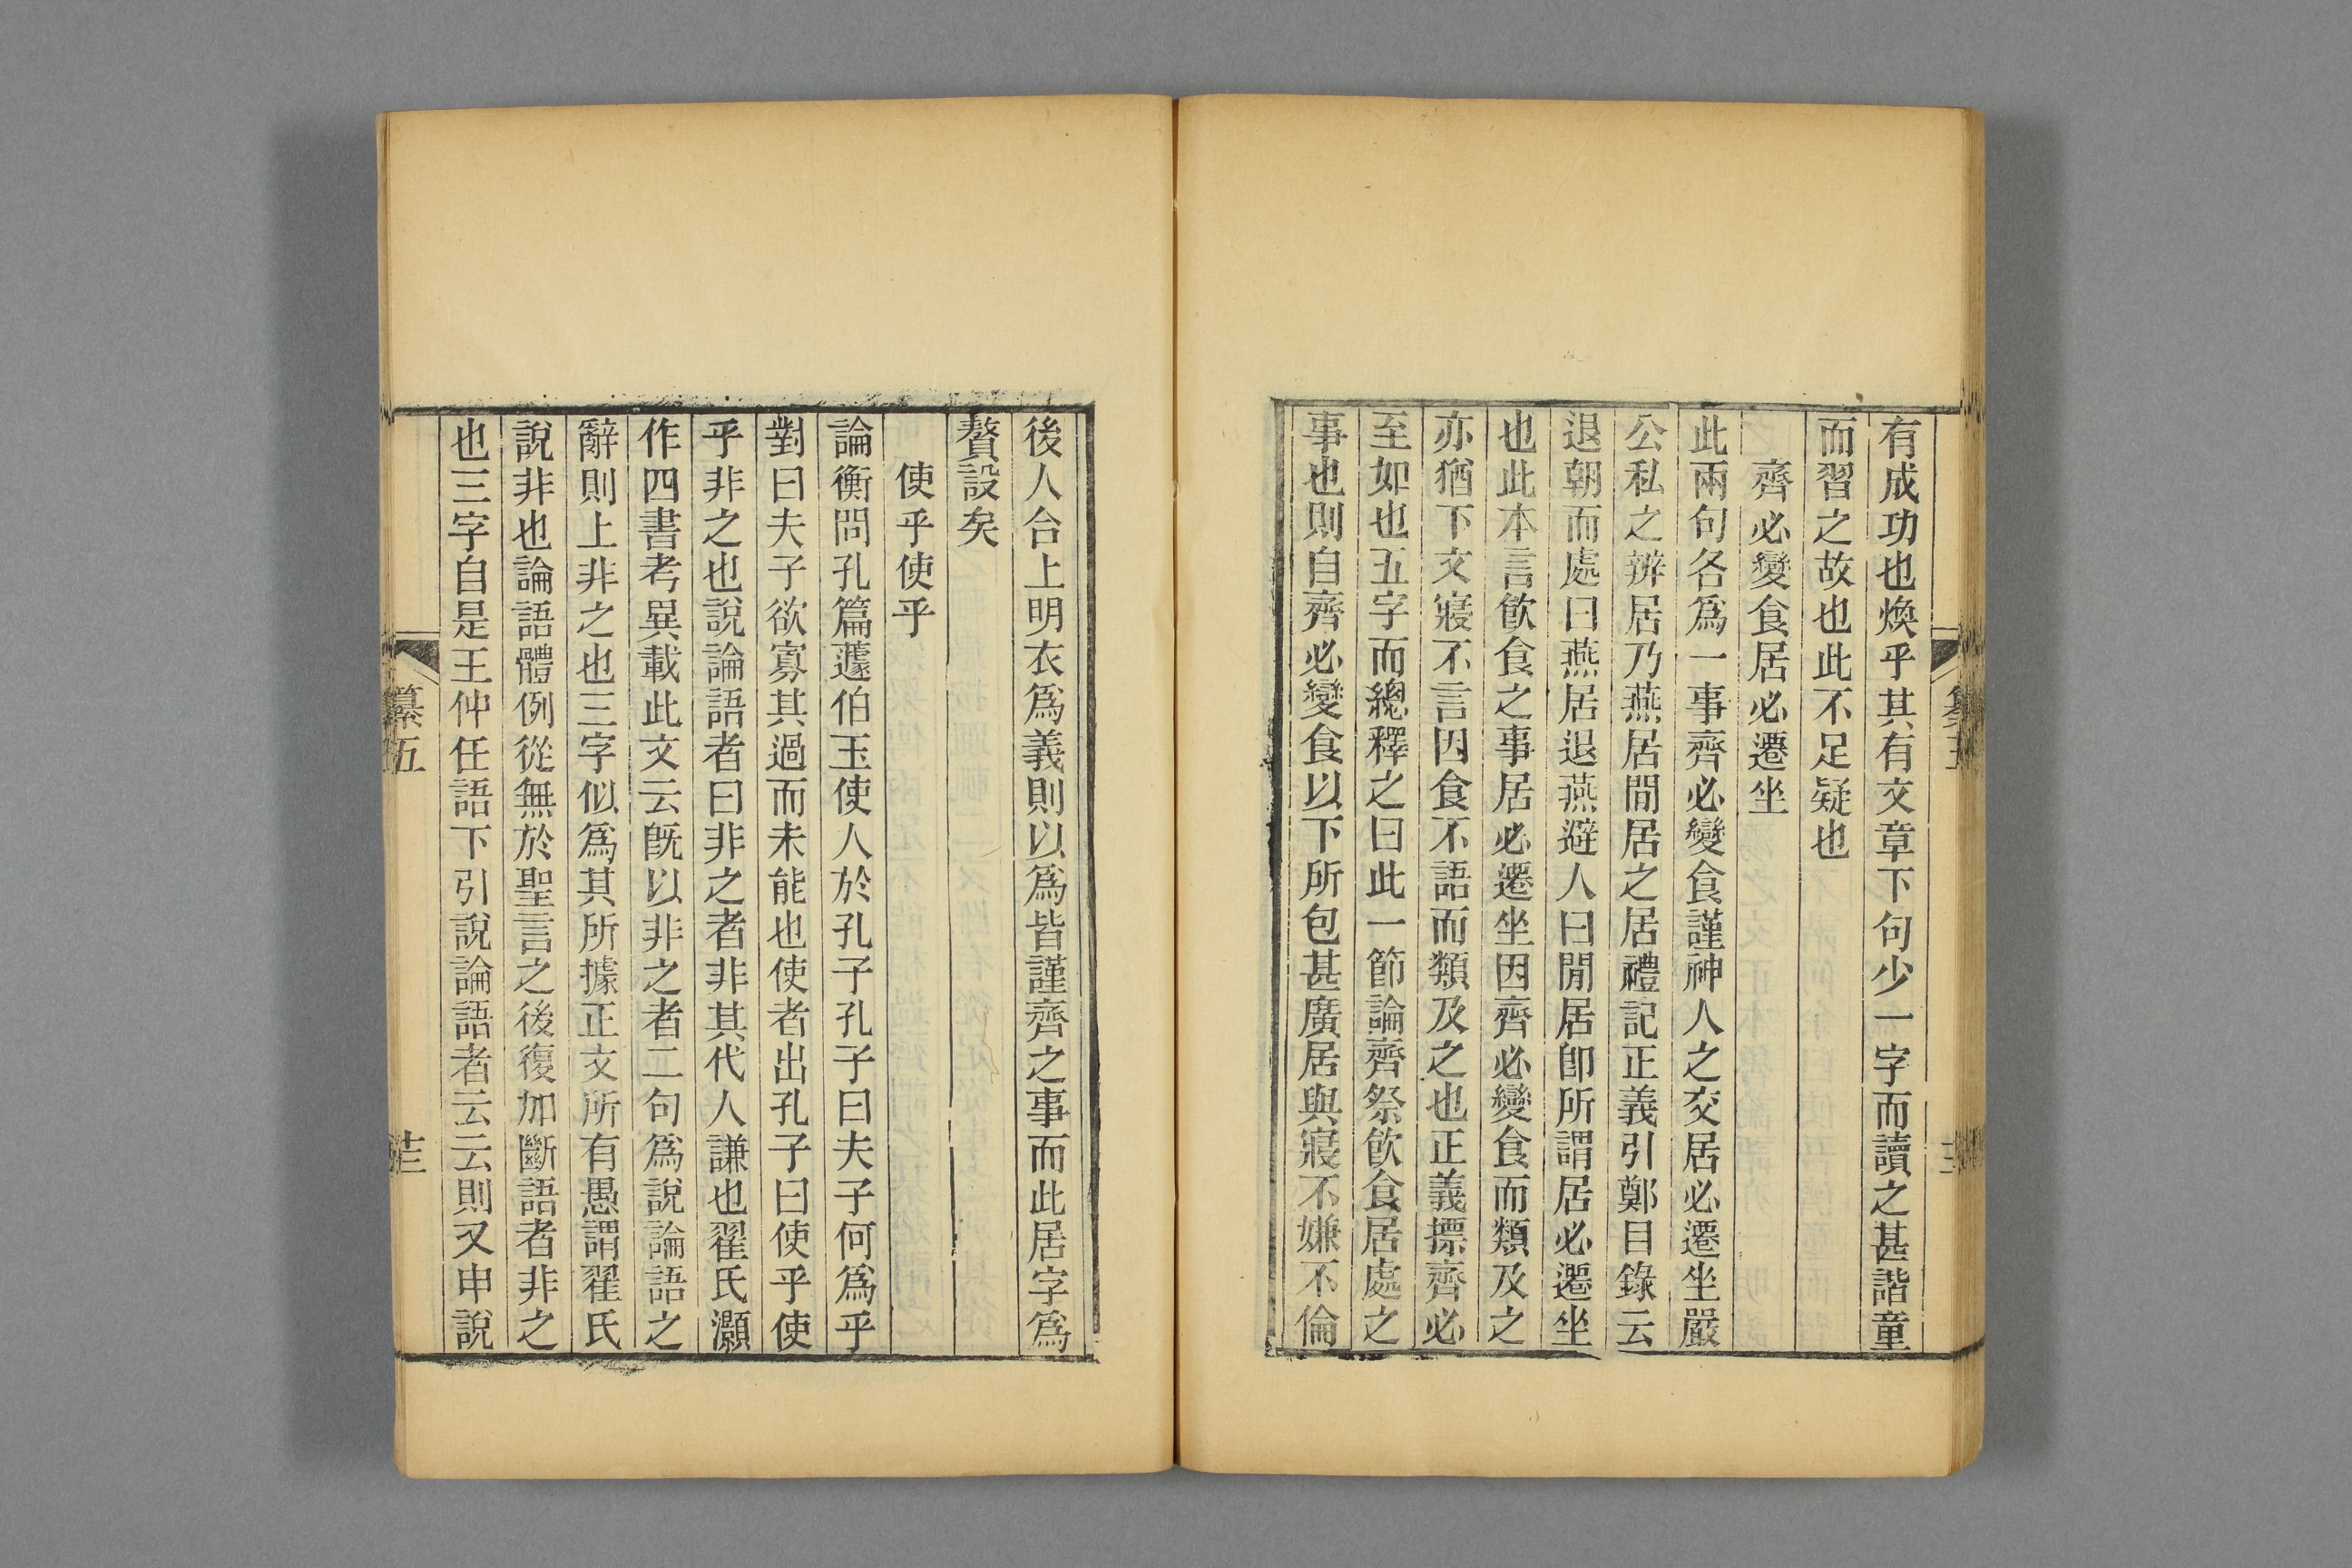 有成功也煥乎其有文章下句少一字而讀之甚諧童
而習之故也此不足疑也
齊必變食居必遷坐
此兩句各爲一事齊必變食謹神人之交居必遷坐嚴
公私之辨居乃燕居閒居之居禮記正義引鄭目錄云
退朝而處曰燕居退燕避人曰閒居卽所謂居必遷坐
也此本言飮食之事居必遷坐因齊必變食而類及之
亦猶下文寢不言因食不語而類及之也正義摽齊必
至如也五字而總釋之曰此一節論齊祭飮食居處之
事也則自齊必變食以下所包甚廣居與寢不嫌不倫
後人合上明衣爲義則以爲皆謹齊之事而此居字爲
贅設矣
使乎使乎
論衡問孔篇蘧伯玉使人於孔子孔子曰夫子何爲乎
對曰夫子欲寡其過而未能也使者出孔子曰使乎使
乎非之也說論語者曰非之者非其代人謙也翟氏灝
作四書考異載此文云旣以非之者二句爲說論語之
辭則上非之也三字似爲其所據正文所有愚謂翟氏
說非也論語體例從無於聖言之後復加斷語者非之
也三字自是王仲任語下引說論語者云云則又申說
纂五